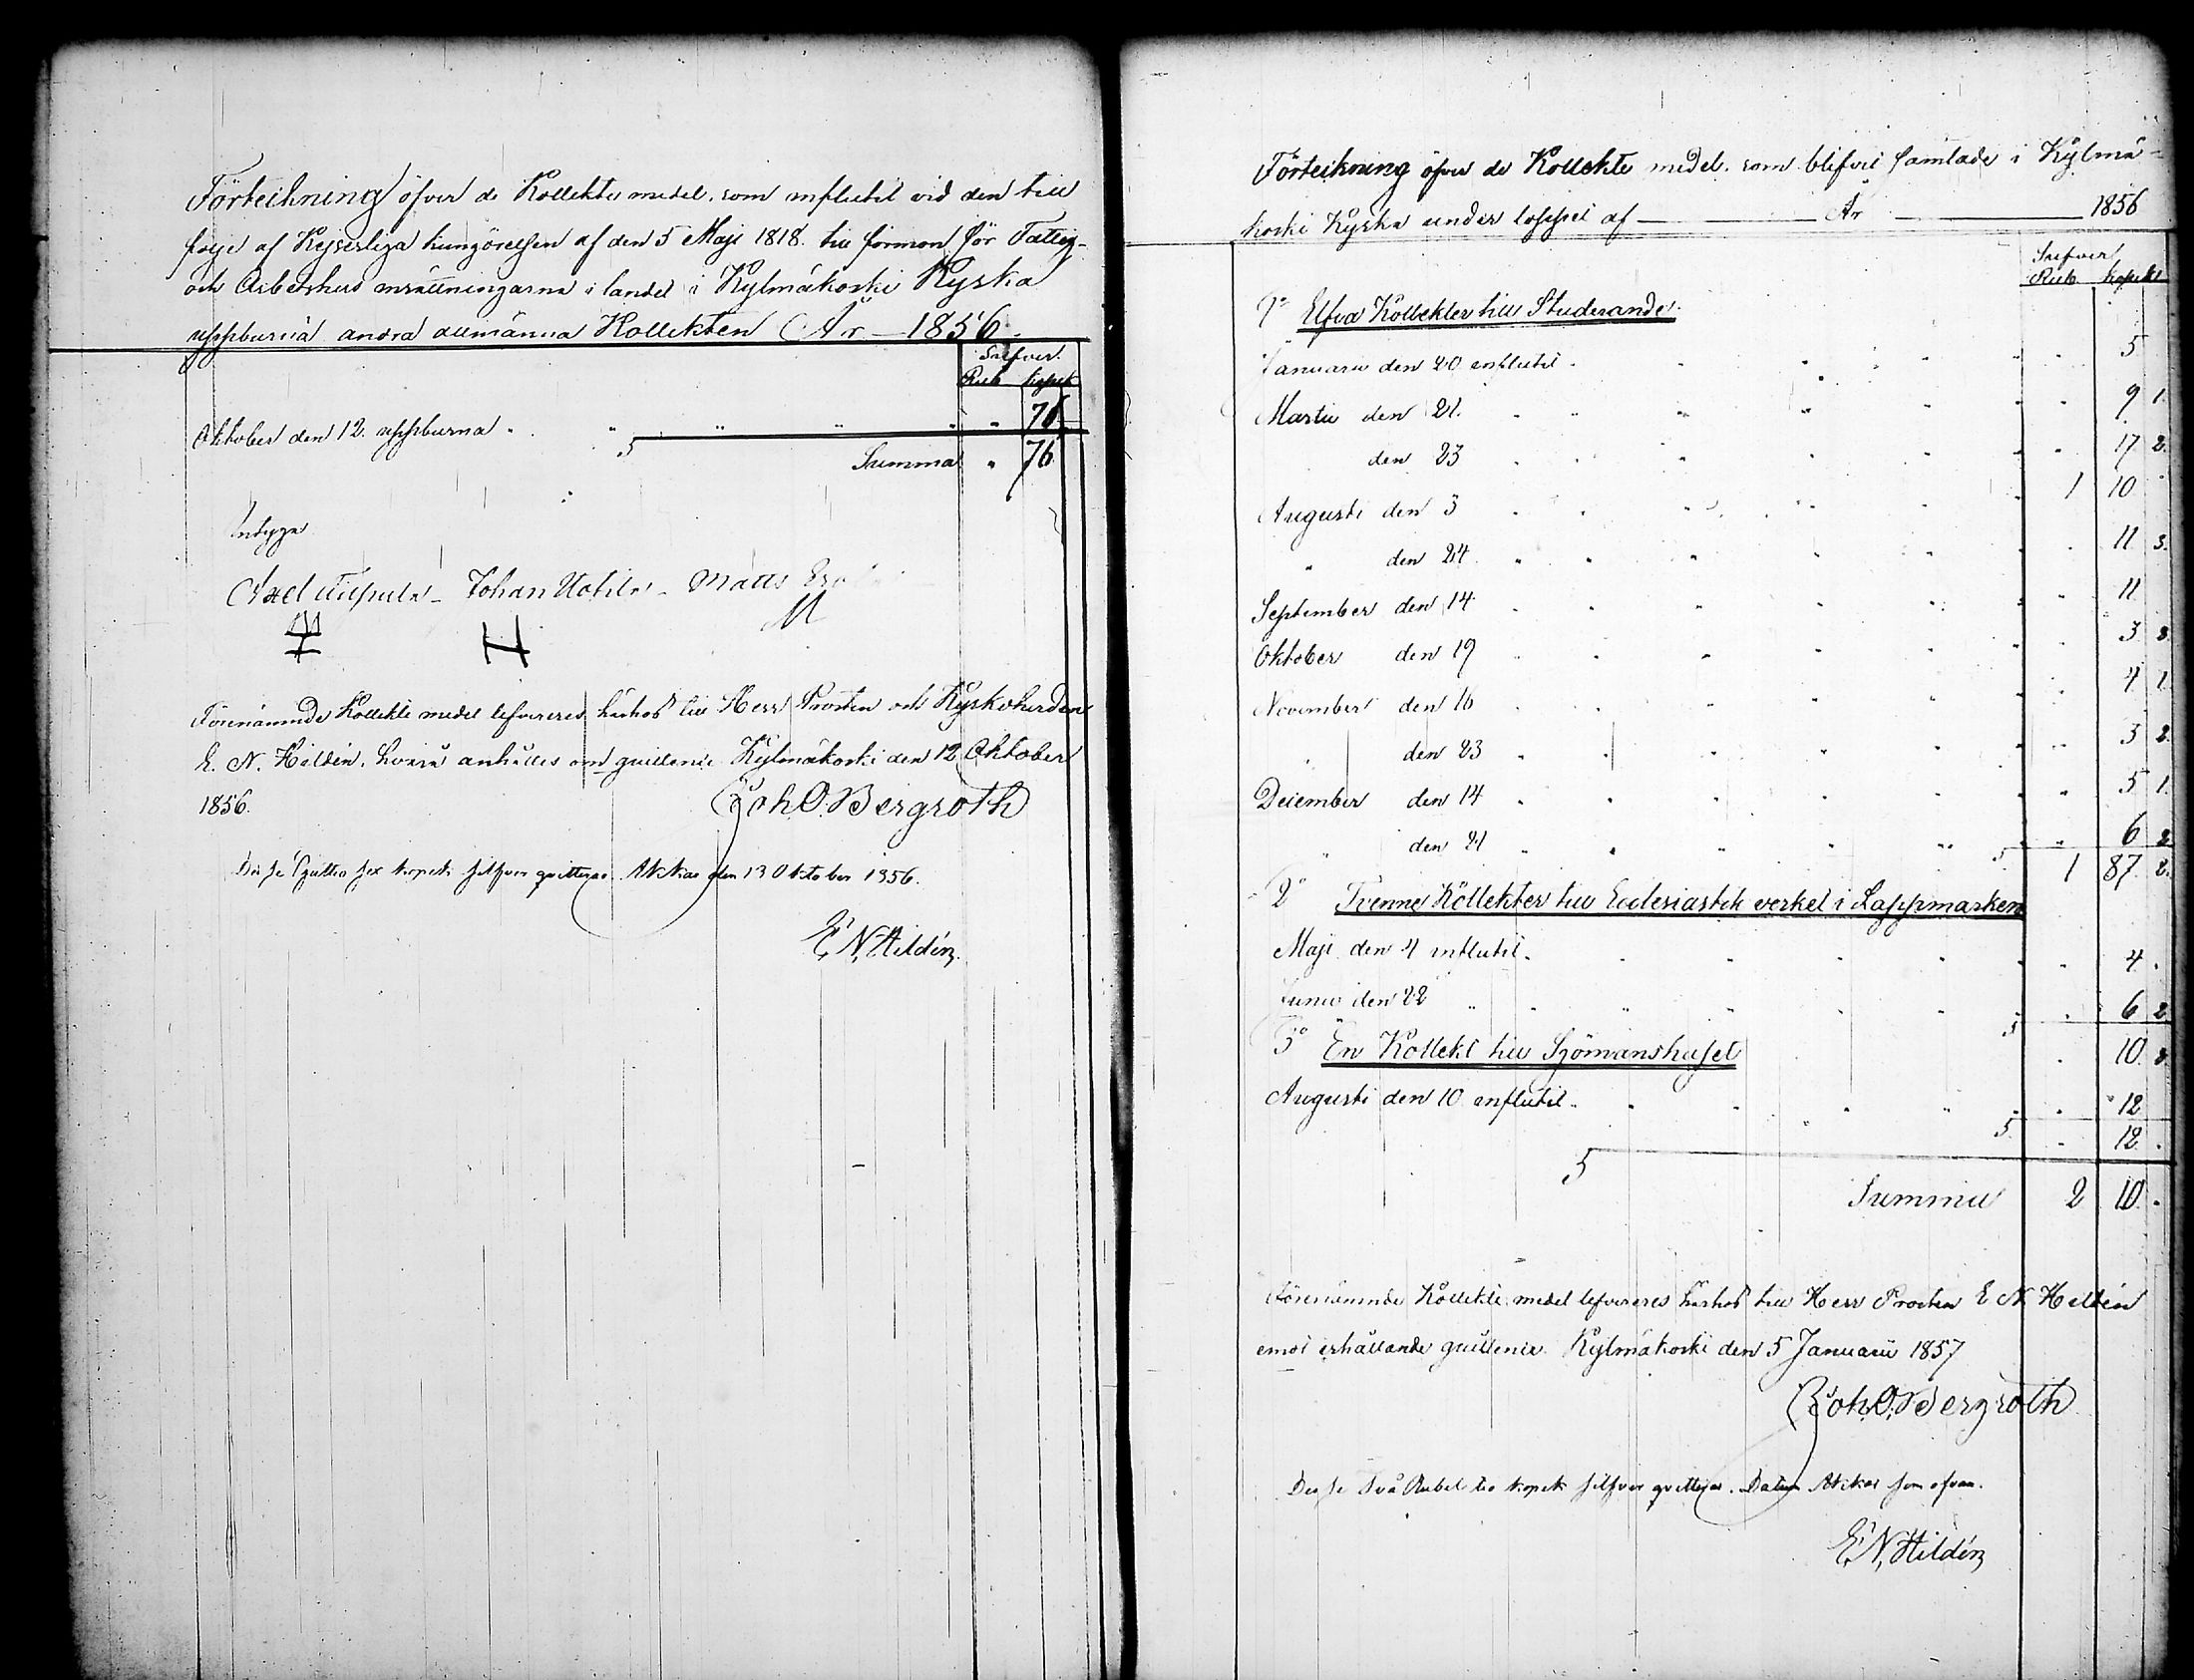 Förteckning öfver de Kollekte medel, som influtit vid den till
följe af Kejserliga kungörelsen af den 5 Maji 1818. till förmon för Fattig-
och Arbetshus inrättningarna i landet i Kylmäkoski Kyrka
uppburna andra allmänna Kollekten År 1856.
Silfver.
Rub. kopek
Oktober den 12. uppburna " " " " " 76
Summa " 76
Intyga
Axel - Johan - Matts
H M
Förenämnde Kollekte medel lefvereres härhos till Herr Prosten och Kyrkoherden
E. N. Hildén, hvarå anhålles om quittence. Kylmäkoski den 12 Oktober
1856. Joh. O. Bergroth
Dessa Sjuttio sex kopek silfver qvitteras. Akkas den 13 Oktober 1856.
E. N. Hildén.
Förteckning öfver de Kollekte medel, som blifvit samlade i Kylmä-
koski Kyrka under loppet af År 1856
Silfver
Rub. kopek
1o Elfva Kollekter till Studerande.
Januarii den 20 influtit " " 5
Martii den 21. " " 9 1.
den 23 " " 17 2.
Augusti den 3 " 1 10
" den 24. " " 11 3.
September den 14 " " 11
Oktober den 19 " " 3 3.
November den 16 " " 4 1.
" den 23 " " 3 2.
December den 14 " " 5 1.
" den 21 " " 6 2
1 87 2.
2o Tvenne Kollekter till Ecclesiastik verket i Lappmarken
Maji den 4 influtit " " 4 "
Junii den 22 " " 6 2
3o En Kollekt till Sjömanshuset " 10 2.
Augusti den 10 influtit " " 12
" 12 "
Summa 2 10 "
Förenämnde Kollekte medel lefvereres härhos till Herr Prosten E. N. Hildén
emot erhållande quittence. Kylmäkoski den 5 Januarii 1857
Joh. O. Bergroth
Dessa Två Rubel tio kopek silfver qvitteras. Datum Akkas som ofvan.
E. N. Hildén